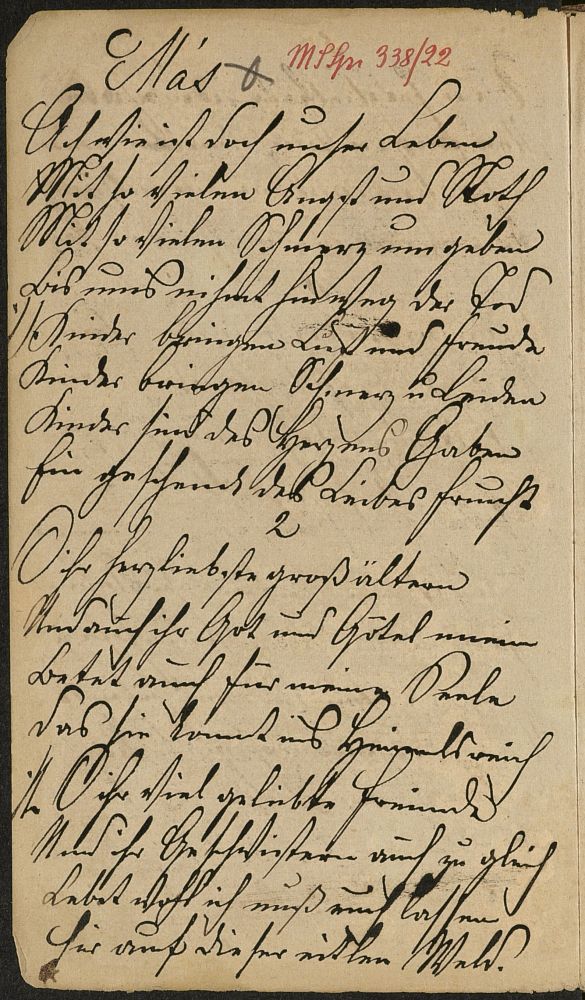 Más MSHr 338/22
Ach wie ist doch unser Leben
Mit so vielen Angst und Noth
Mit so vielen Schmerz um geben
Bis uns nihmt hinweg der Tod
Kinder bringen Lust und Freude
Kinder bringen Schmerz u Leiden
Kinder sind des Herzens Gaben
Ein geschenk des Leibes frucht
2
O ihr herzliebste groß ältern
Und auch ihr Got und Götel mein
Betet auch für meine Seele
Das sie komt ins Himmelsreich
O ihr viel geliebte Freunde
Und ihr Geschwistern auch zu gleich
Lebet wohl ich muß euch lassen
hir auf dieser eitlen Weld.